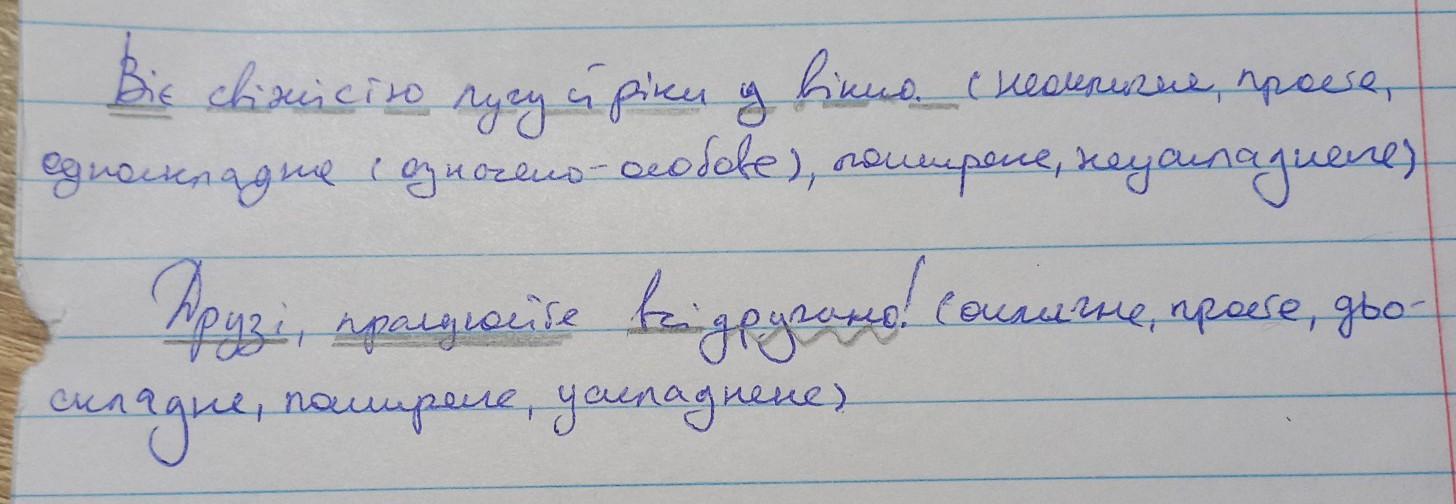 Віє свіжістю лугу й ріки у вікно. (неокличне, просте,
односкладне (означено-особове), поширене, неускладнене)
Друзі, працюйте всі дружно! (окличне, просте, дво-
складне, поширене, ускладнене)